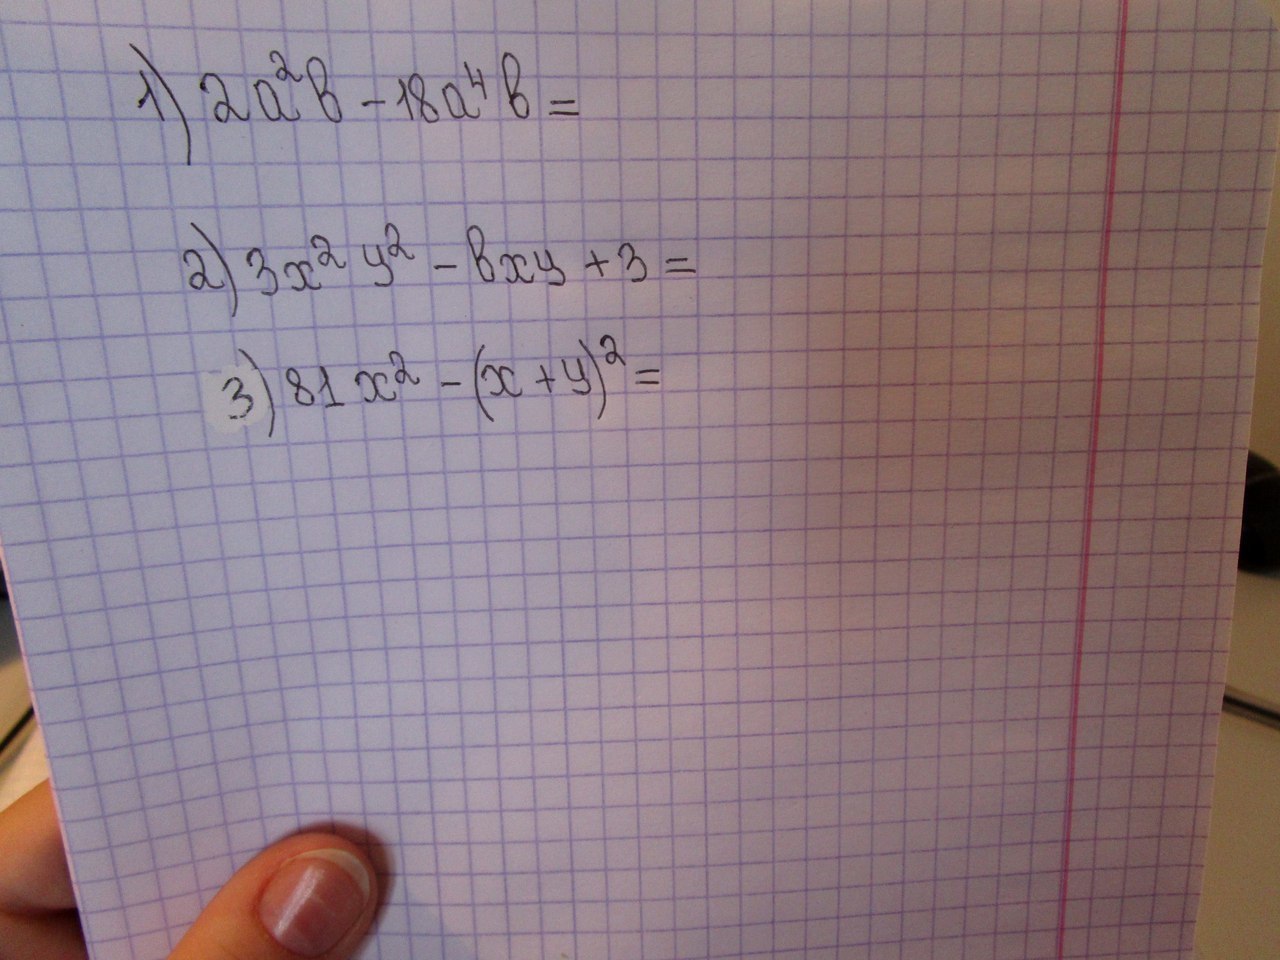 1) 2a²b - 18a⁴b =
2) 3x² y² - bxy + 3 =
3) 81x² - (x + y)² =